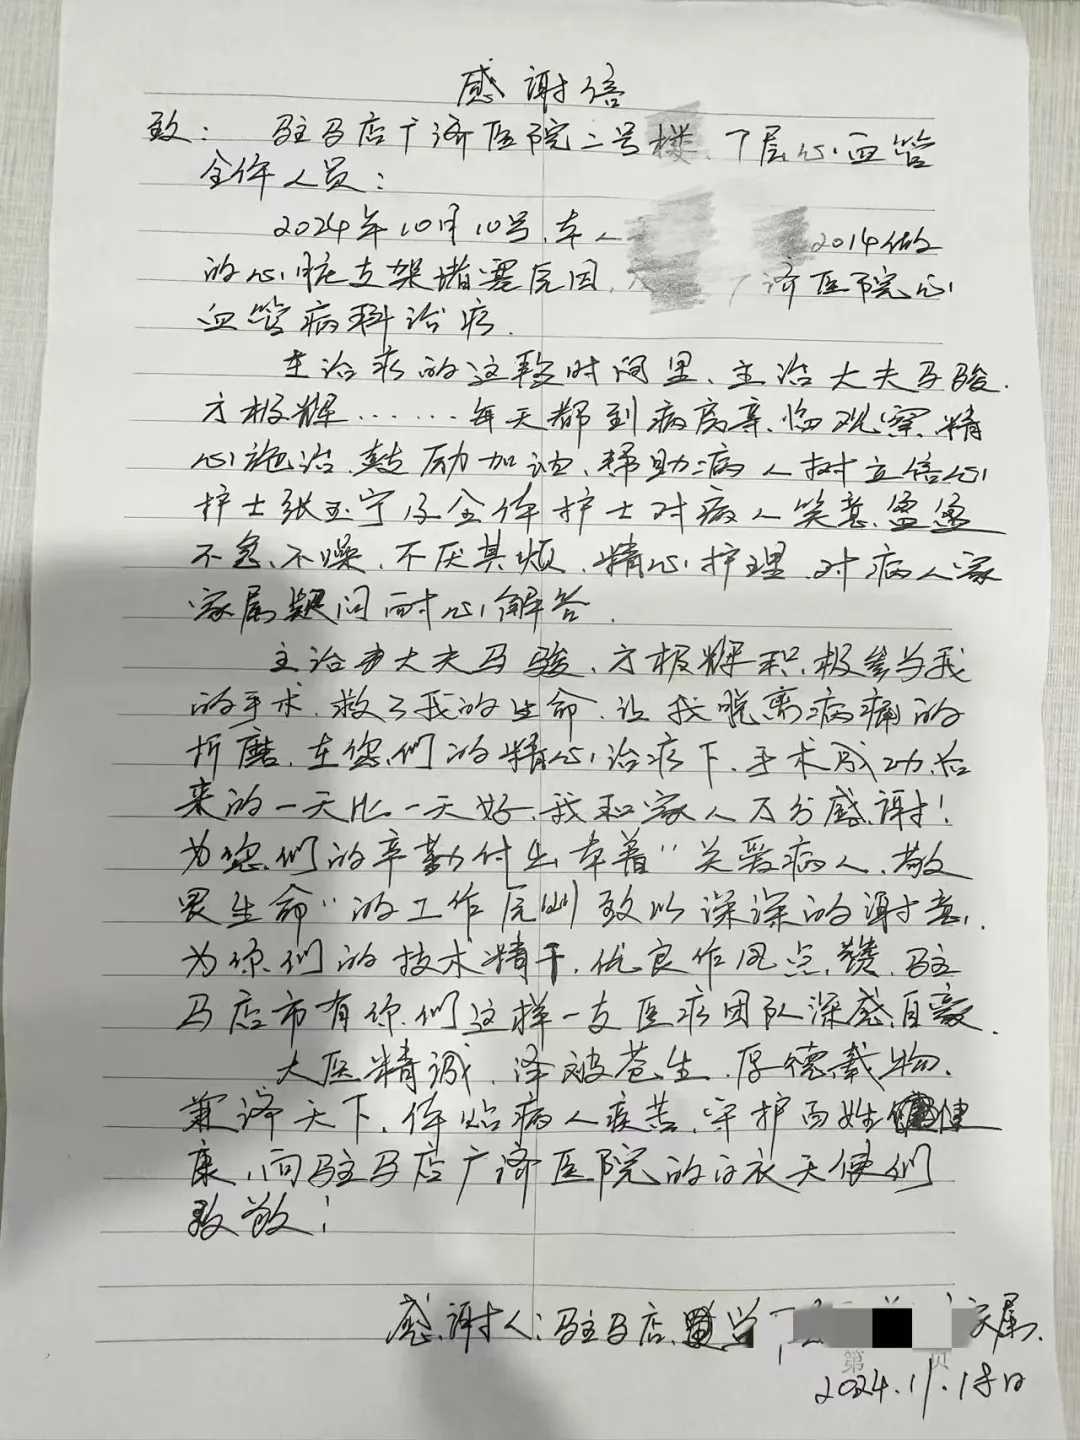 感谢信
致： 驻马店广济医院二号楼，丁层心血管
全体人员：
2024年10月10号，本人 2014做
的心脏支架堵塞原因， 济医院心
血管病科治疗.
在治疗的这段时间里、主治大夫马骏.
方极辉……每天都到病房亲临观察、精
心施治、鼓励加油、帮助病人树立信心
护士张玉宁及全体护士对病人笑意盈盈
不急、不噪、不厌其烦、精心护理、对病人家
家属疑问耐心解答.
主治大夫马骏、方极辉积极参与我
的手术、救了我的生命、让我脱离病痛的
折磨、在您们的精心治疗下、手术成功后
来的一天比一天好、我和家人万分感谢！
为您们的辛勤付出本着“关爱病人、敬
畏生命”的工作原则致以深深的谢意.
为你们的技术精干、优良作风点赞、驻
马店市有你们这样一支医疗团队深感自豪.
大医精诚、泽被苍生、厚德载物、
兼济天下、体贴病人疾苦、守护百姓健
康、向驻马店广济医院的白衣天使们
致敬！
感谢人：驻马店 家属.
第 页
2024.11.18日